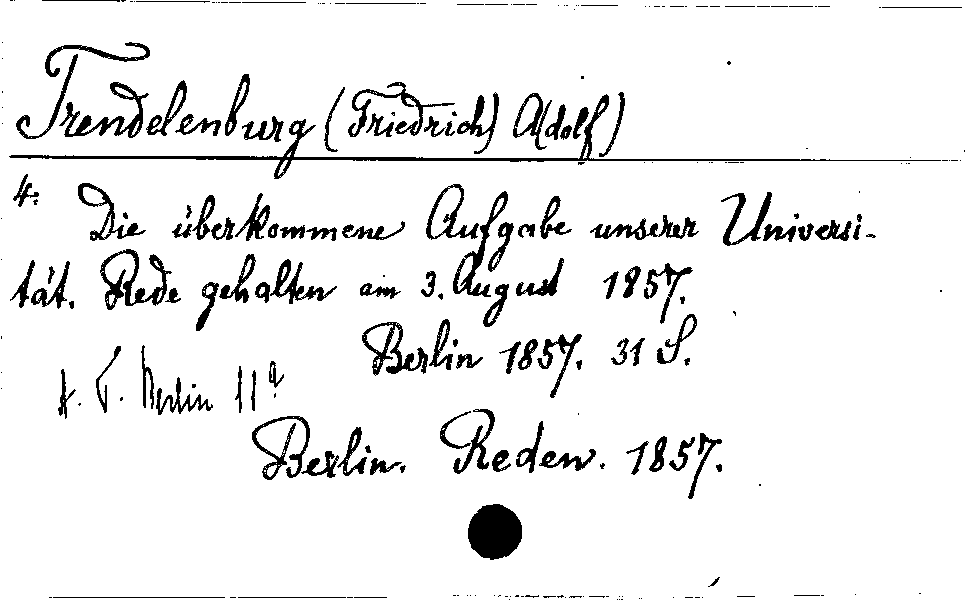 Trendelenburg (Friedrich) Adolf)
4: Die überkommene Aufgabe unserer Universi-
tät. Rede gehalten am 3. August 1857.
Berlin 1857. 31 S.
Berlin 11
Berlin. Reden. 1857.